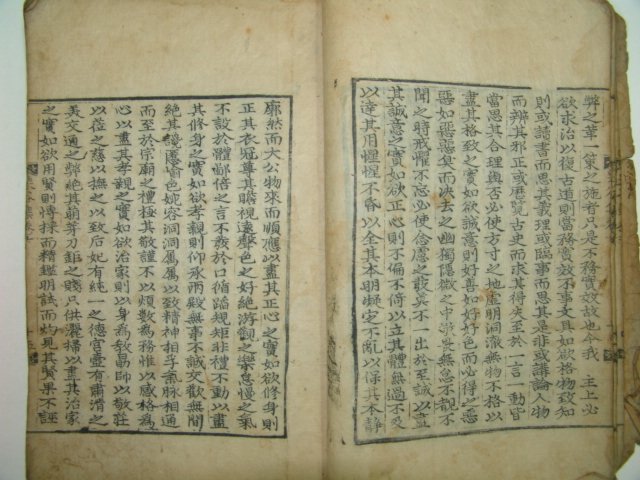 弊之革一策之施者只是不務實效故也今我 王上必
欲求治以復古道則當務實效不事文具如欲格物致知
則或讀書而思其義理或臨事而思其是非或講論人物
而辨其邪正或歷覽古史而求其得失至於一言一動皆
當思其合理與否必使方寸之地虛明洞澈無物不格以
盡其格致之實如欲誠意則好善如好好色而必得之惡
惡如惡惡臭而決去之幽獨隱微之中敬畏無怠不覩不
聞之時戒懼不忘必使念慮之發莫不一出於至誠以盡
其誠意之實如欲正心則不偏不倚以立其體無過不及
以達其用惺惺不昏以全其本明凝定不亂以保其本靜
廓然而大公物來而順應以盡其正心之實如欲修身則
正其衣冠尊其瞻視遠聲色之好絶游觀之樂怠慢之氣
不設於體鄙倍之言不發於口循蹈規矩非禮不動以盡
其修身之實如欲孝親則仰承兩殿無事不誠交歡無間
絶其讒愉色婉容洞洞屬屬以致精神相孚氣脉相通
而至於宗廟之禮極其敬謹不以煩數為務惟以感格為
心以盡其孝親之實如欲治家則以身為教勗帥以敬莊
以莅之慈以撫之以致后妃有純一之德宮壼有肅清之
美交通之弊絶其萌芽刀鉅之賤只供灑掃以盡其治家
之實如欲用賢則博採而精鑑明試而灼見其賢果不誣